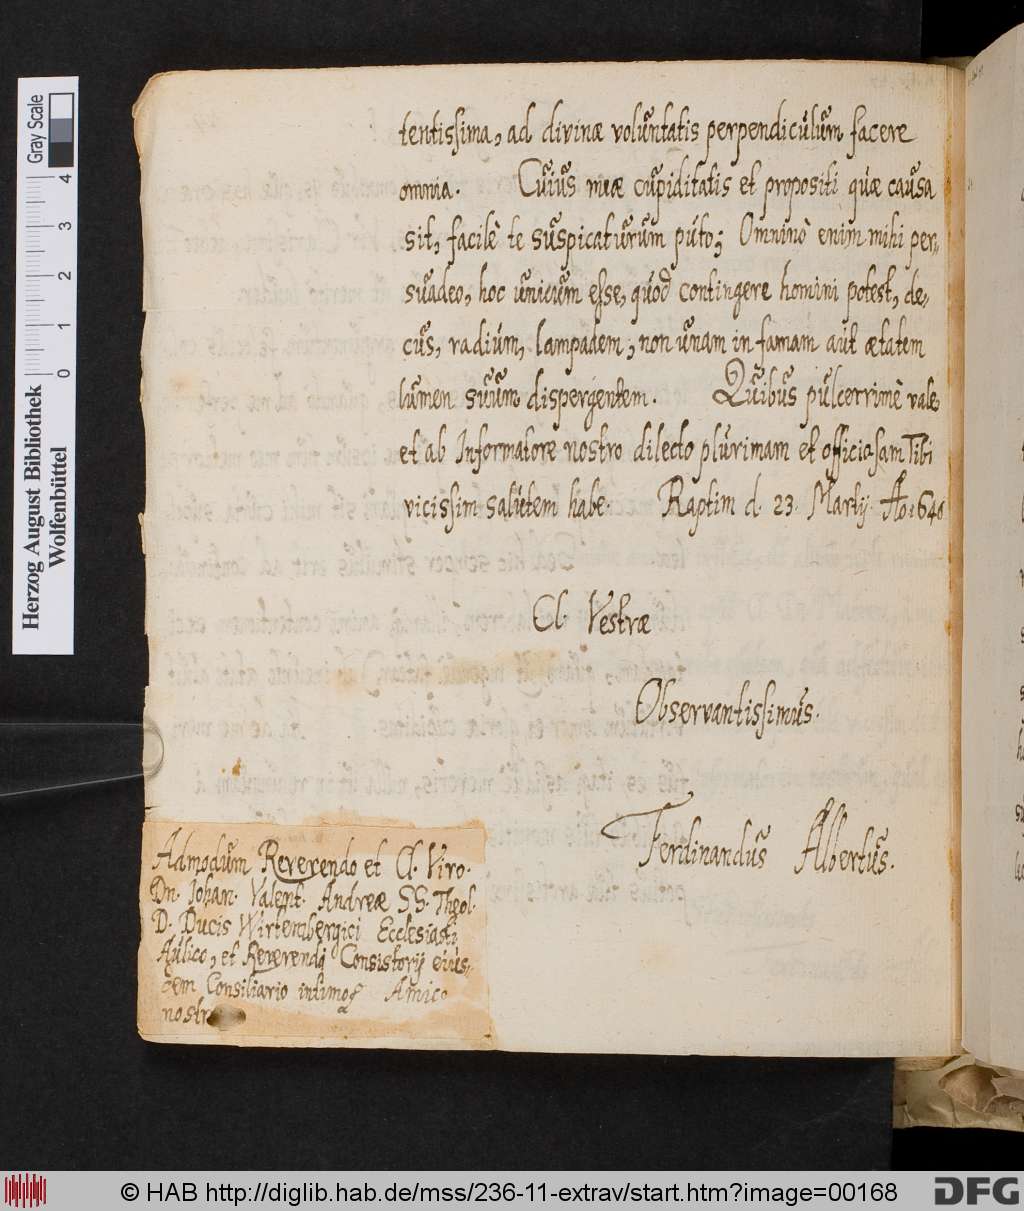 tentissima, ad divinæ voluntatis perpendiculum facere
omnia. Cuius meæ cupiditatis et propositi quæ causa
sit, facilè te suspicaturum puto; Omninò enim mihi per-
suadeo, hoc unicum esse, quod contingere homini potest, de-
cus, radium, lampadem; non unam in famam aut ætatem
lumen suum dispergentem. Quibus pulcerrimè vale
et ab Informatore nostro dilecto plurimam et officiosam Tibi
vicissim salutem habe. Raptim d. 23. Martij Ao. 64
Cl. Vestræ
Observantissimus.
Ferdinandus Albertus.
Admodum Reverendo et Cl. Viro.
Dn. Johan. Valent. Andreæ SS. Theol.
D. Ducis Wirtembergici Ecclesiasti
Aulico, et Reverendi Consistorij eius-
dem Consiliario intimo Amico
nostr
Herzog August Bibliothek
Wolfenbüttel
Gray Scale
0 1 2 3 4
© HAB http://diglib.hab.de/mss/236-11-extrav/start.htm?image=00168
DFG